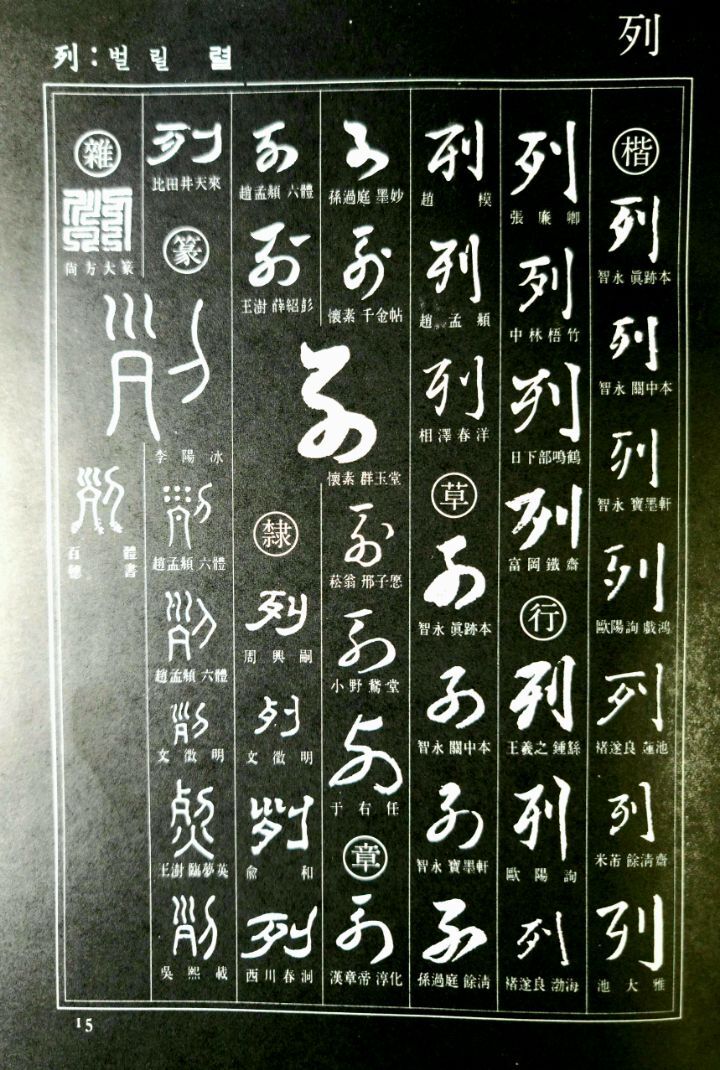 列
列:벌릴 렬
楷
列
智永 眞跡本
列
智永 關中本
列
智永 寶墨軒
列
歐陽詢 戲鴻
列
褚遂良 蓮池
列
米芾 餘清齋
列
池大雅
列
張廉卿
列
中林梧竹
列
日下部鳴鶴
列
富岡鐵齋
行
列
王羲之 鍾繇
列
歐陽詢
列
褚遂良 渤海
列
趙模
列
趙孟頫
列
相澤春洋
草
列
智永 眞跡本
列
智永 關中本
列
智永 寶墨軒
列
孫過庭 餘清
列
孫過庭 墨妙
列
懷素 千金帖
列
懷素 群玉堂
列
菘翁 邢子愿
列
小野鵞堂
列
于右任
章
列
漢章帝 淳化
列
趙孟頫 六體
列
王澍 薛紹彭
隸
列
周興嗣
列
文徵明
列
俞和
列
西川春洞
列
比田井天來
篆
列
李陽冰
列
趙孟頫 六體
列
趙孟頫 六體
列
文徵明
列
王澍臨夢英
列
吳熙載
雜
列
尚方大篆
列
百體書
15